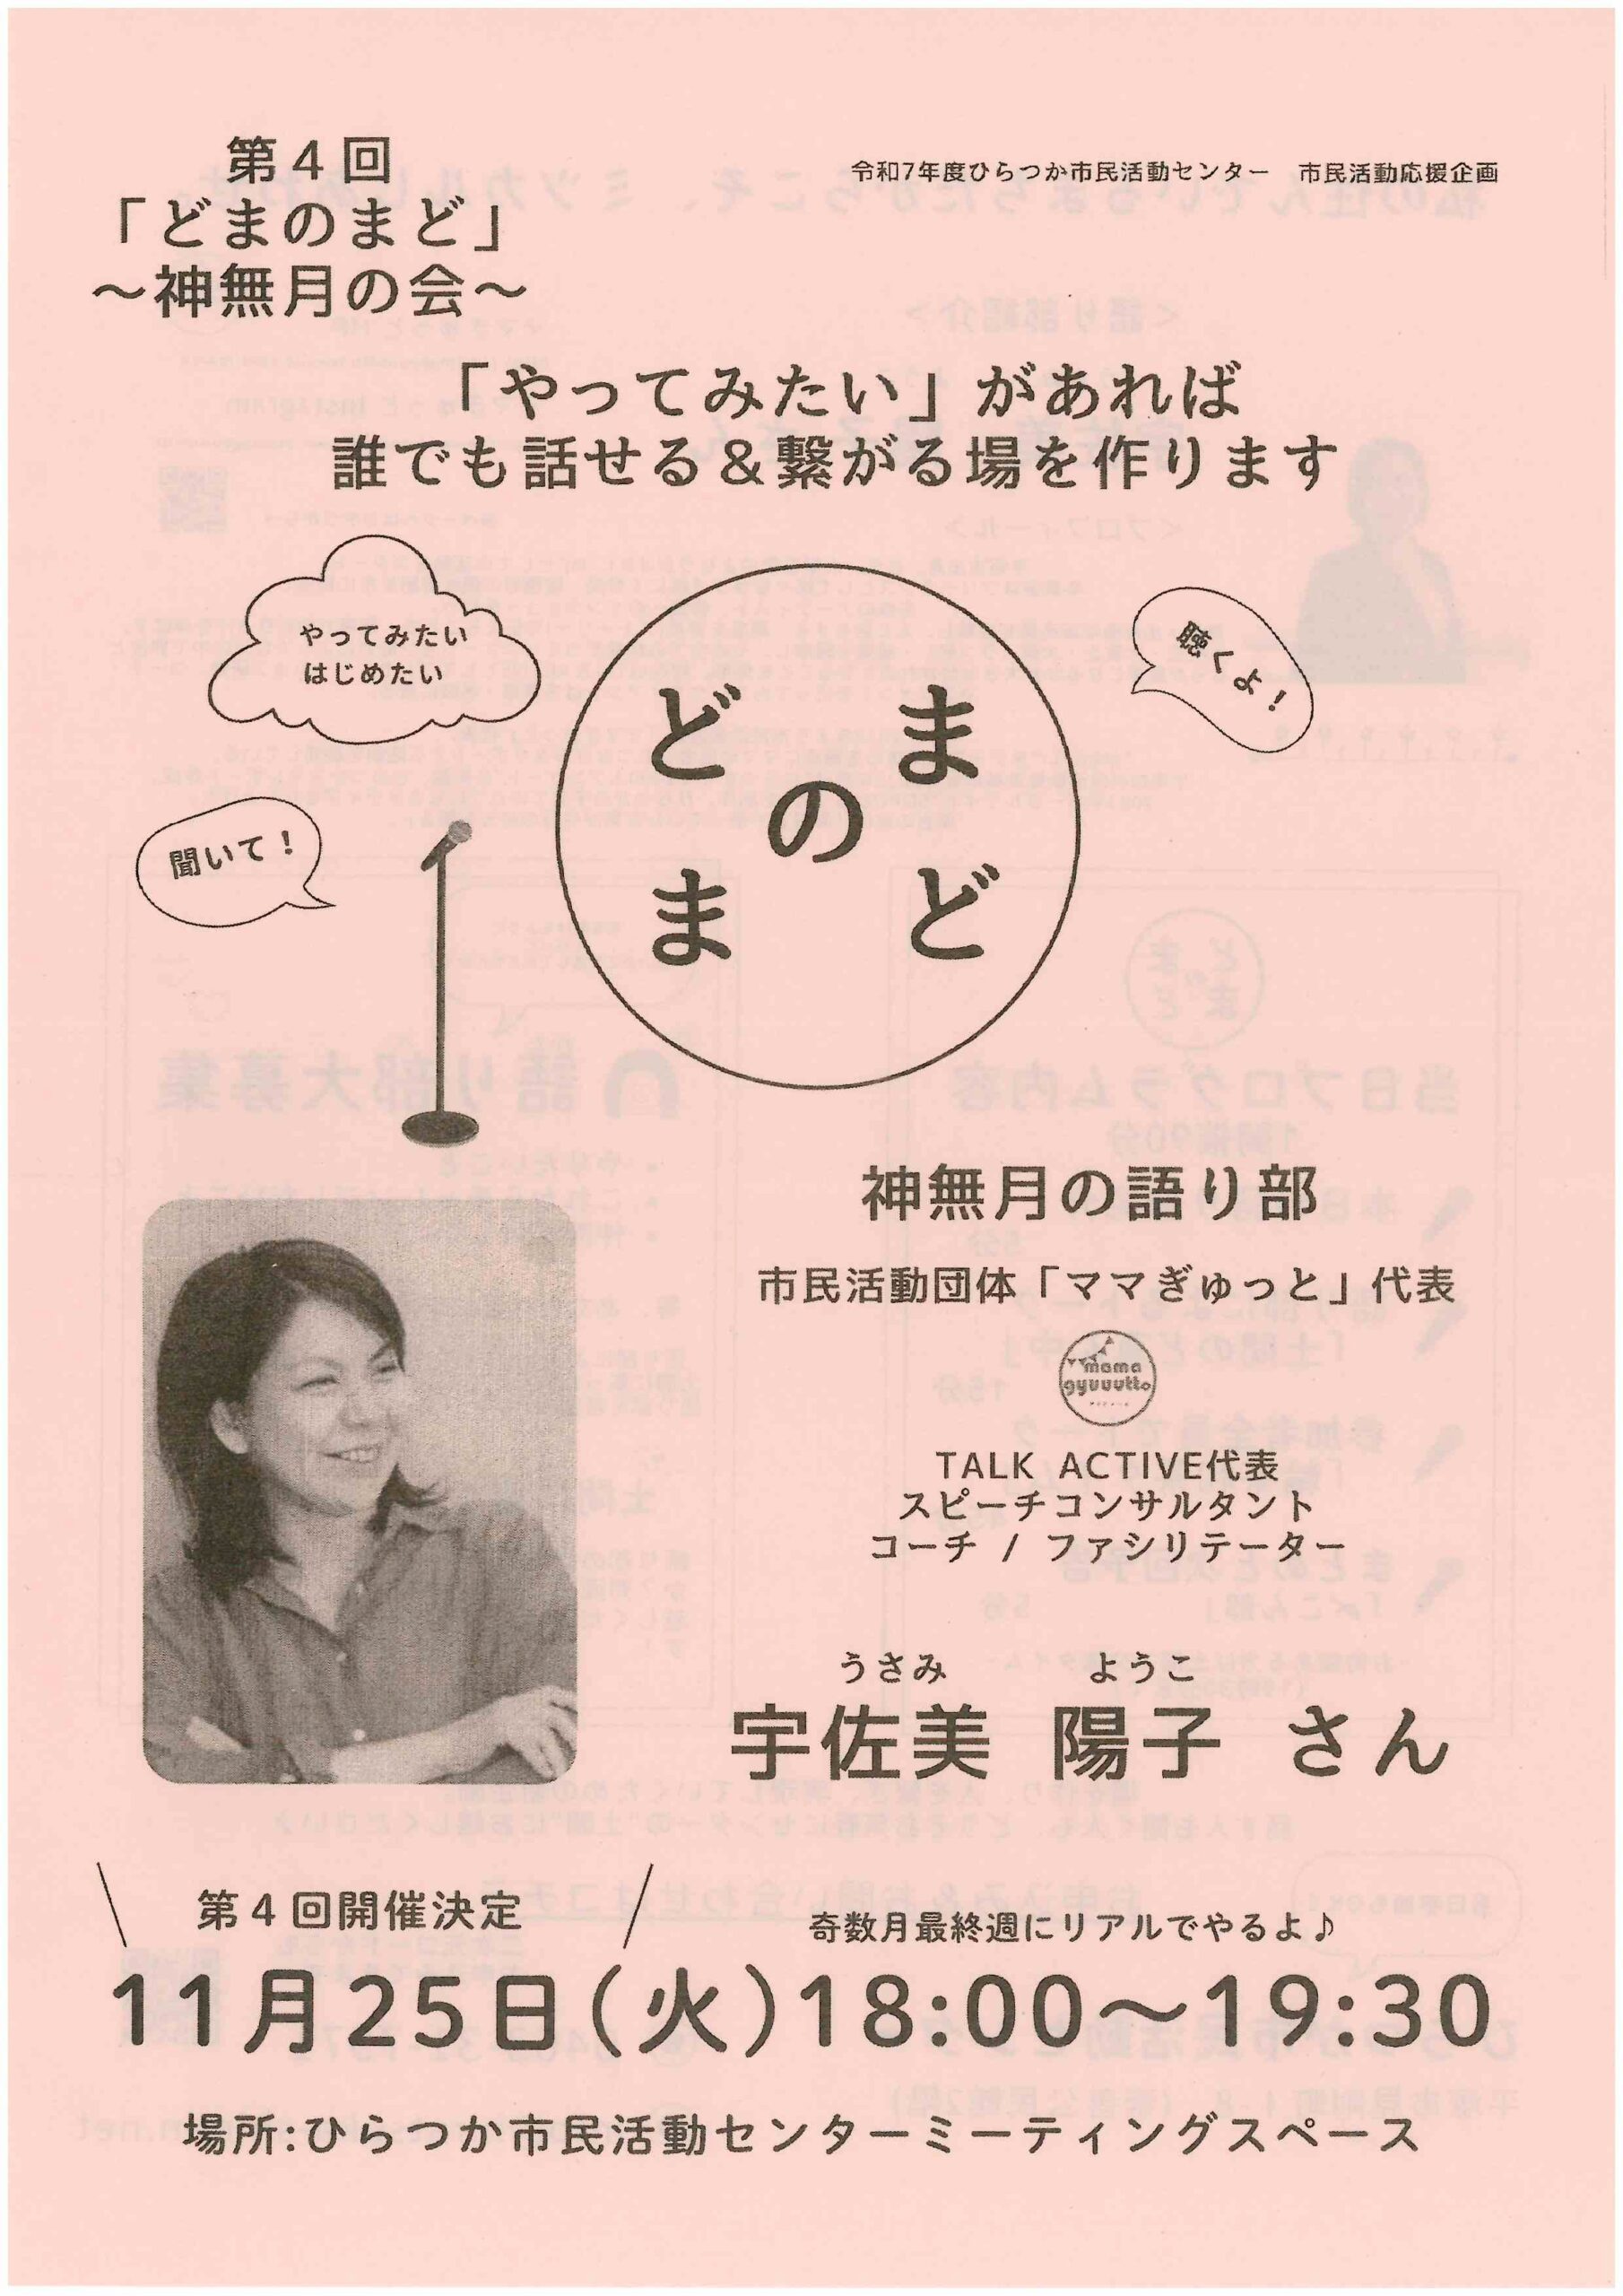 第４回
「どまのまど」
～神無月の会～
令和7年度ひらつか市民活動センター　市民活動応援企画
「やってみたい」があれば
誰でも話せる＆繋がる場を作ります
やってみたい
はじめたい
聴くよ！
聞いて！
どま
の
まど
神無月の語り部
市民活動団体「ママぎゅっと」代表
mama
gyuuutto
TALK ACTIVE代表
スピーチコンサルタント
コーチ / ファシリテーター
うさみ　ようこ
宇佐美 陽子 さん
第４回開催決定
奇数月最終週にリアルでやるよ♪
11月25日(火)18:00～19:30
場所:ひらつか市民活動センターミーティングスペース